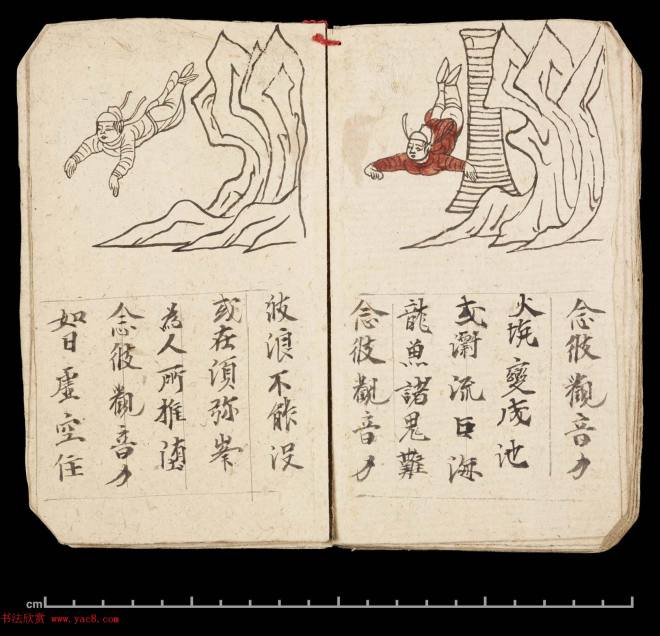 念彼觀音力
火坑變成池
或漂流巨海
龍魚諸鬼難
念彼觀音力
波浪不能没
或在湏弥峯
為人所推墮
念彼觀音力
如日虛空住
cm
书法欣赏 www.yac8.com